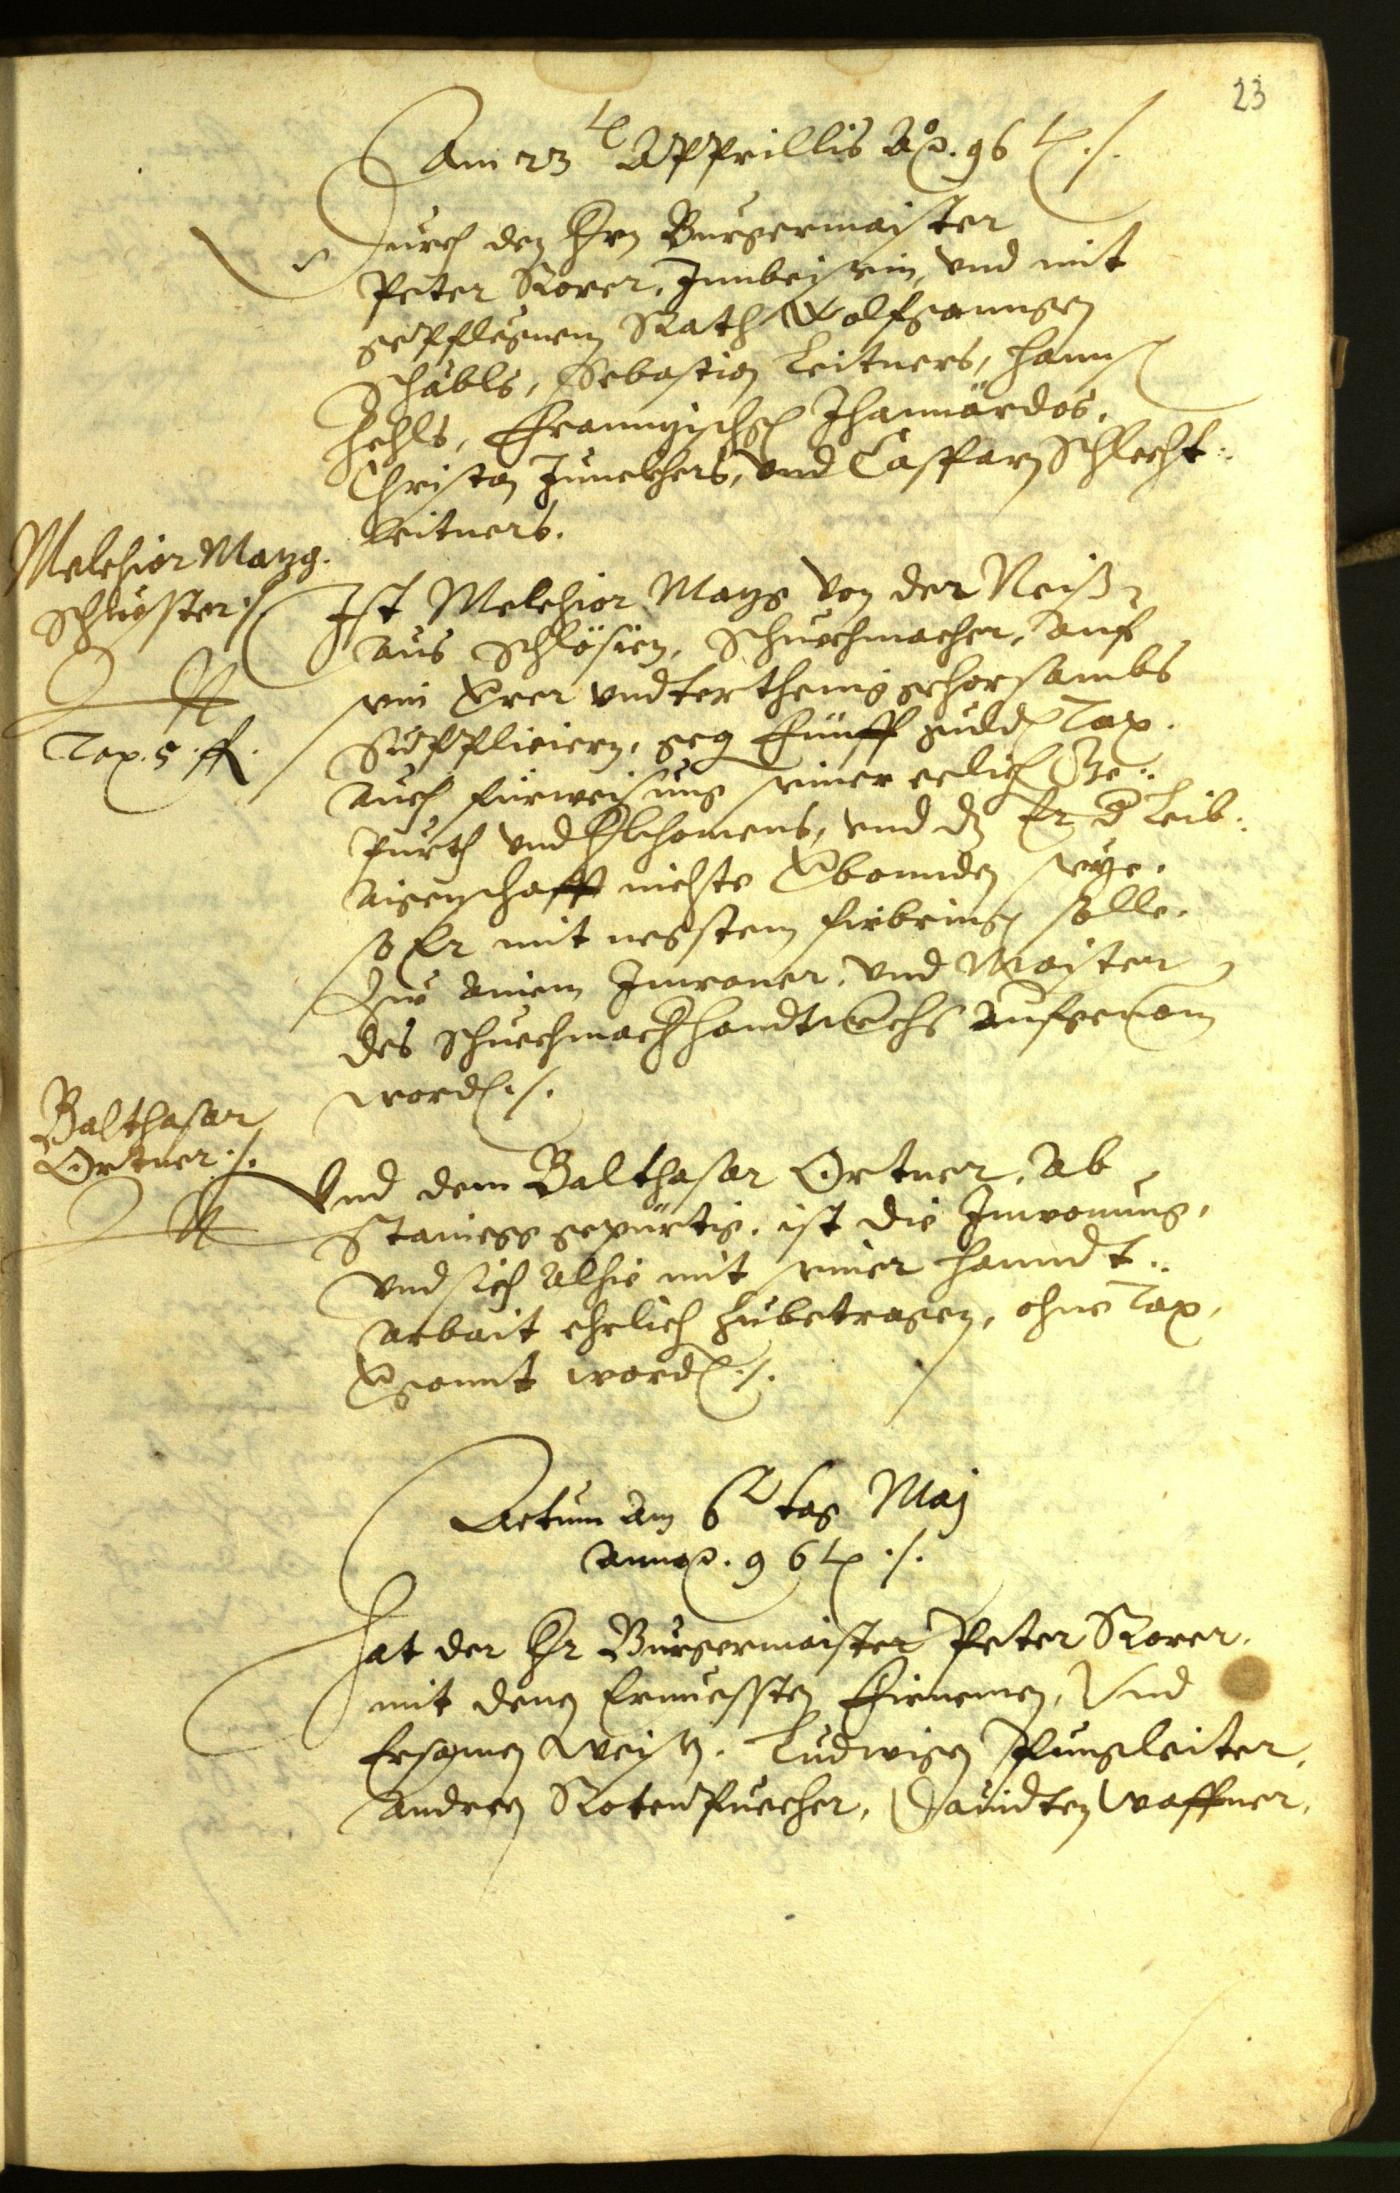 23
Am 23 Apprillis Ao. 96 ./.
Durch den Hrn Burgermaister
Peter Rorer, Innbeisein, vnd mit
gepflegnem Rath Wolfganngen
Schäbls, Sebastian Leitners, Hannß
Hehls, Frannzischgh Jhanärdos,
Christan Junckhers, vnd Casparn Schlecht..
leitners.
Melchior Mang.
Schuester ./.
Tax. 5 fl.
Ist Melchior Mang von der Neiß
aus Schlösien, Schuechmacher, auf
sein Erer vndterthenig gehorsambs
Suppliciern, geg Fünff guld Tax.
auch fürweisung seiner eelich Ge..
purth vnd Herkhomens, vnd dz Er d Leib..
aigenschafft nichts Verbonnden seye.
so Er mit negstem fürbringen solle.
Zu ainem Inwoner, vnd Maister
des Schuechmacher handtwerchs aufgenomen
worden ./.
Balthasar
Ortner ./.
Vnd dem Balthasar Ortner, ab
Stainegg gepürtig, ist die Inwonung,
vnd sich alhie mit seiner Hanndt..
arbait ehrlich zubetragen, ohne Tax,
Vergonnt worden ./.
Actum am 6 tag Maj
anno. 96 ./.
Hat der Hr Burgermaister Peter Rorer,
mit denen Ernuessten Fürnemen, Vnd
Ersamen Weisen, Ludwigen Pfungleiter,
Andreen Rotenpuecher, Dauidten Waffner,